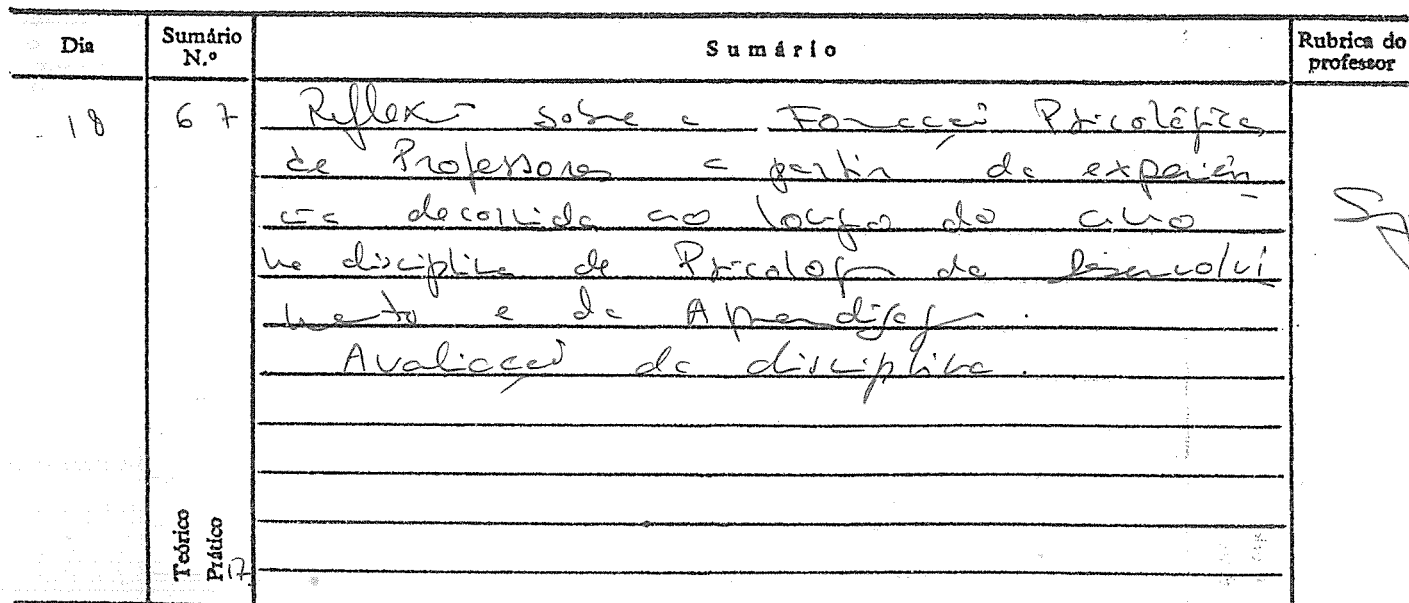 Dia
Sumário N.º
Sumário
Rubrica do professor
18
67
Reflexão sobre a Formação Psicológica
de Professores a partir da experiên
cia decorrida ao longo do ano
na disciplina de Psicologia do Desenvolvi
mento e da Aprendizagem.
Avaliação da disciplina.
Teórico
Prático 17